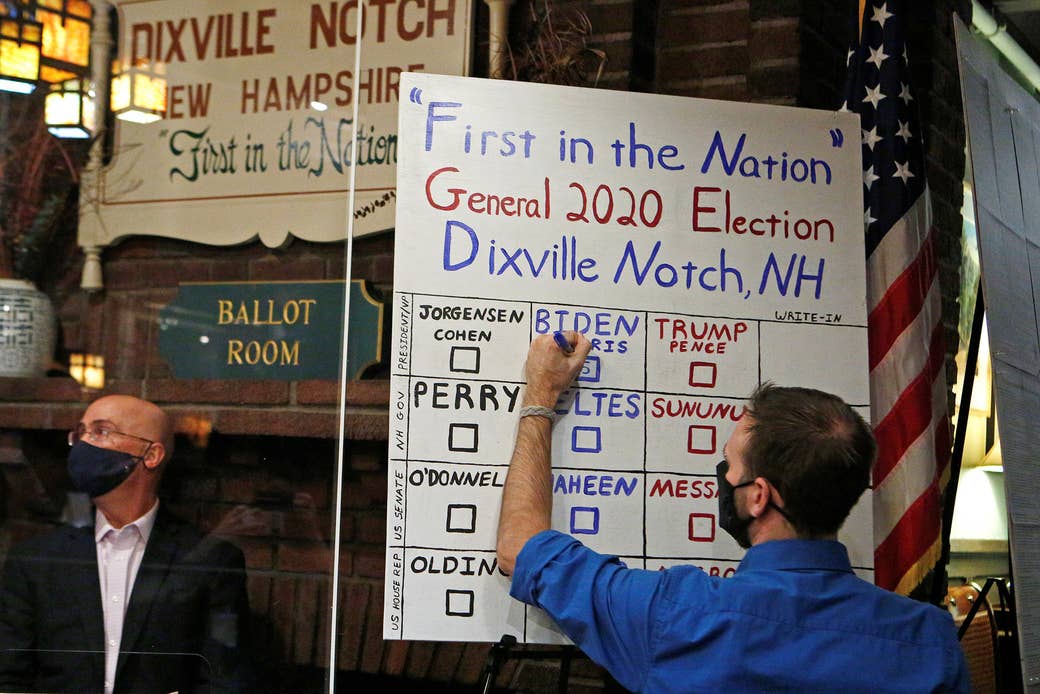 DIXVILLE NOTCH
NEW HAMPSHIRE
"First in the Nation
BALLOT
ROOM
"First in the Nation"
General 2020 Election
Dixville Notch, NH
WRITE-IN
PRESIDENT/VP
JORGENSEN
COHEN
BIDEN
RIS
5
TRUMP
PENCE
NH GOV
PERRY
ELTES
SUNUNU
US SENATE
O'DONNEL
AHEEN
MESS
US HOUSE REP
OLDIN